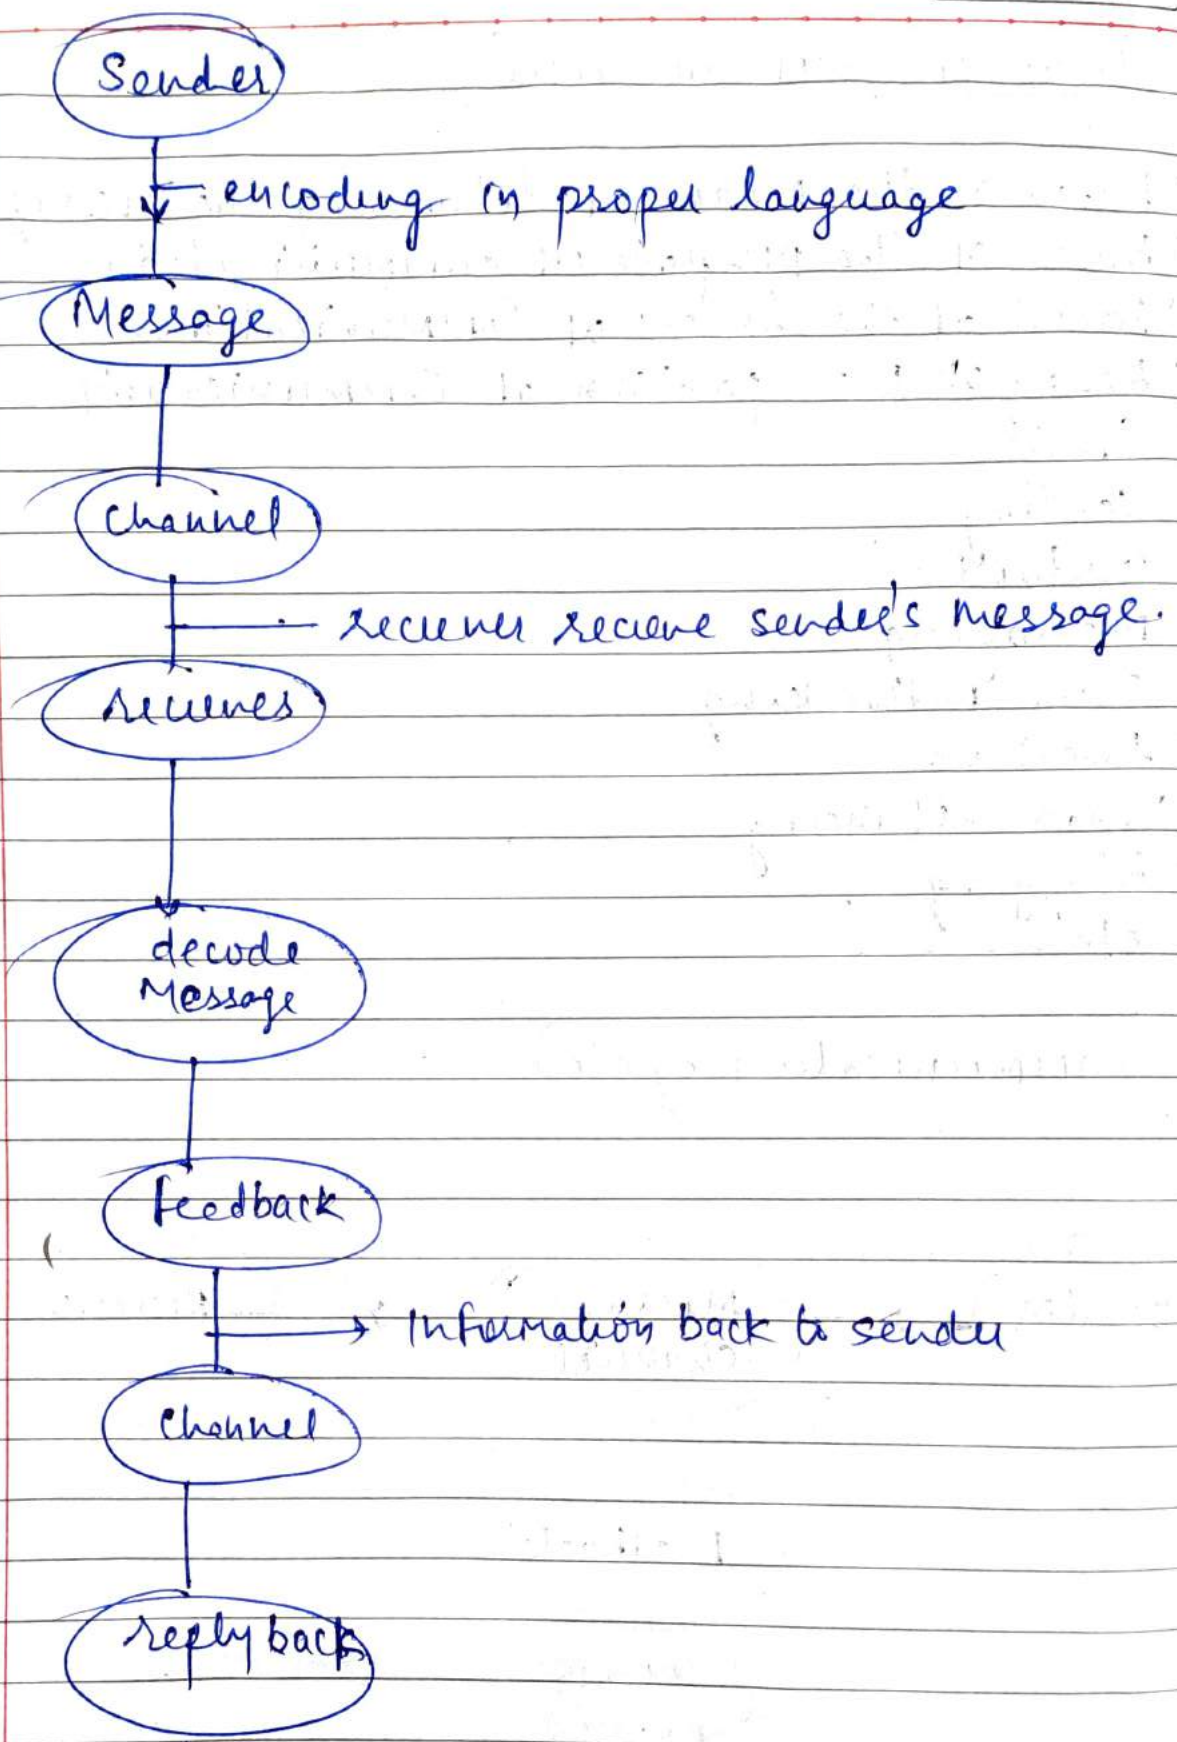 Sender
encoding in proper language
Message
Channel
reciever recieve sender's message.
reciever
decode
Message
feedback
Information back to sender
Channel
reply back